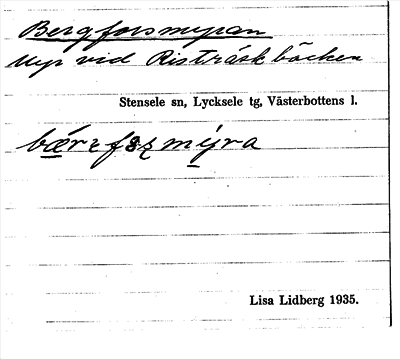 Bergforsmyran
Myr vid Risträskbäcken
Stensele sn, Lycksele tg, Västerbottens l.
Lisa Lidberg 1935.